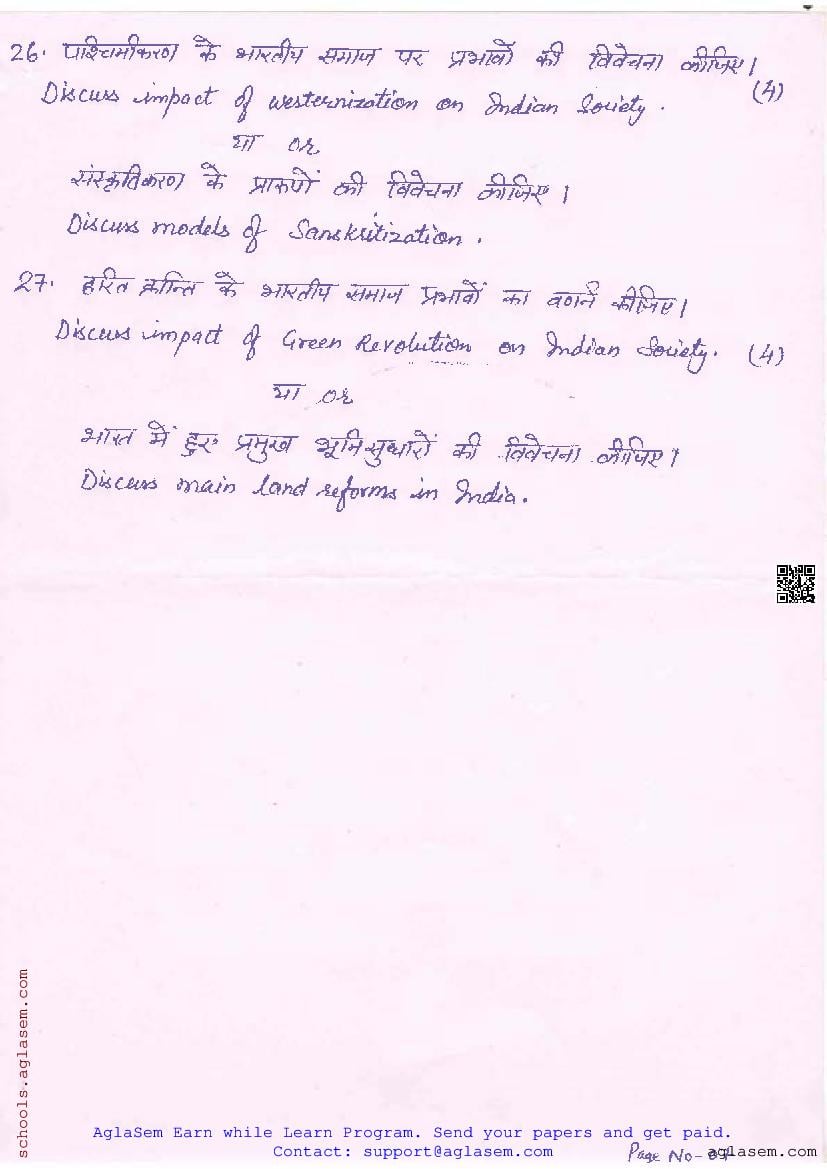 26. पाश्चिमीकरण के भारतीय समाज पर प्रभावों की विवेचना कीजिए।
Discuss impact of westernization on Indian Society. (4)
या or
संस्कृतिकरण के प्रारुपों की विवेचना कीजिए।
Discuss models of Sanskritization.
27. हरित क्रान्ति के भारतीय समाज प्रभावों का वर्णन कीजिए।
Discuss impact of Green Revolution on Indian Society. (4)
या or
भारत में हुए प्रमुख भूमि सुधारों की विवेचना कीजिए।
Discuss main land reforms in India.
schools.aglasem.com
AglaSem Earn while Learn Program. Send your papers and get paid.
Contact: support@aglasem.com
Page No-
aglasem.com